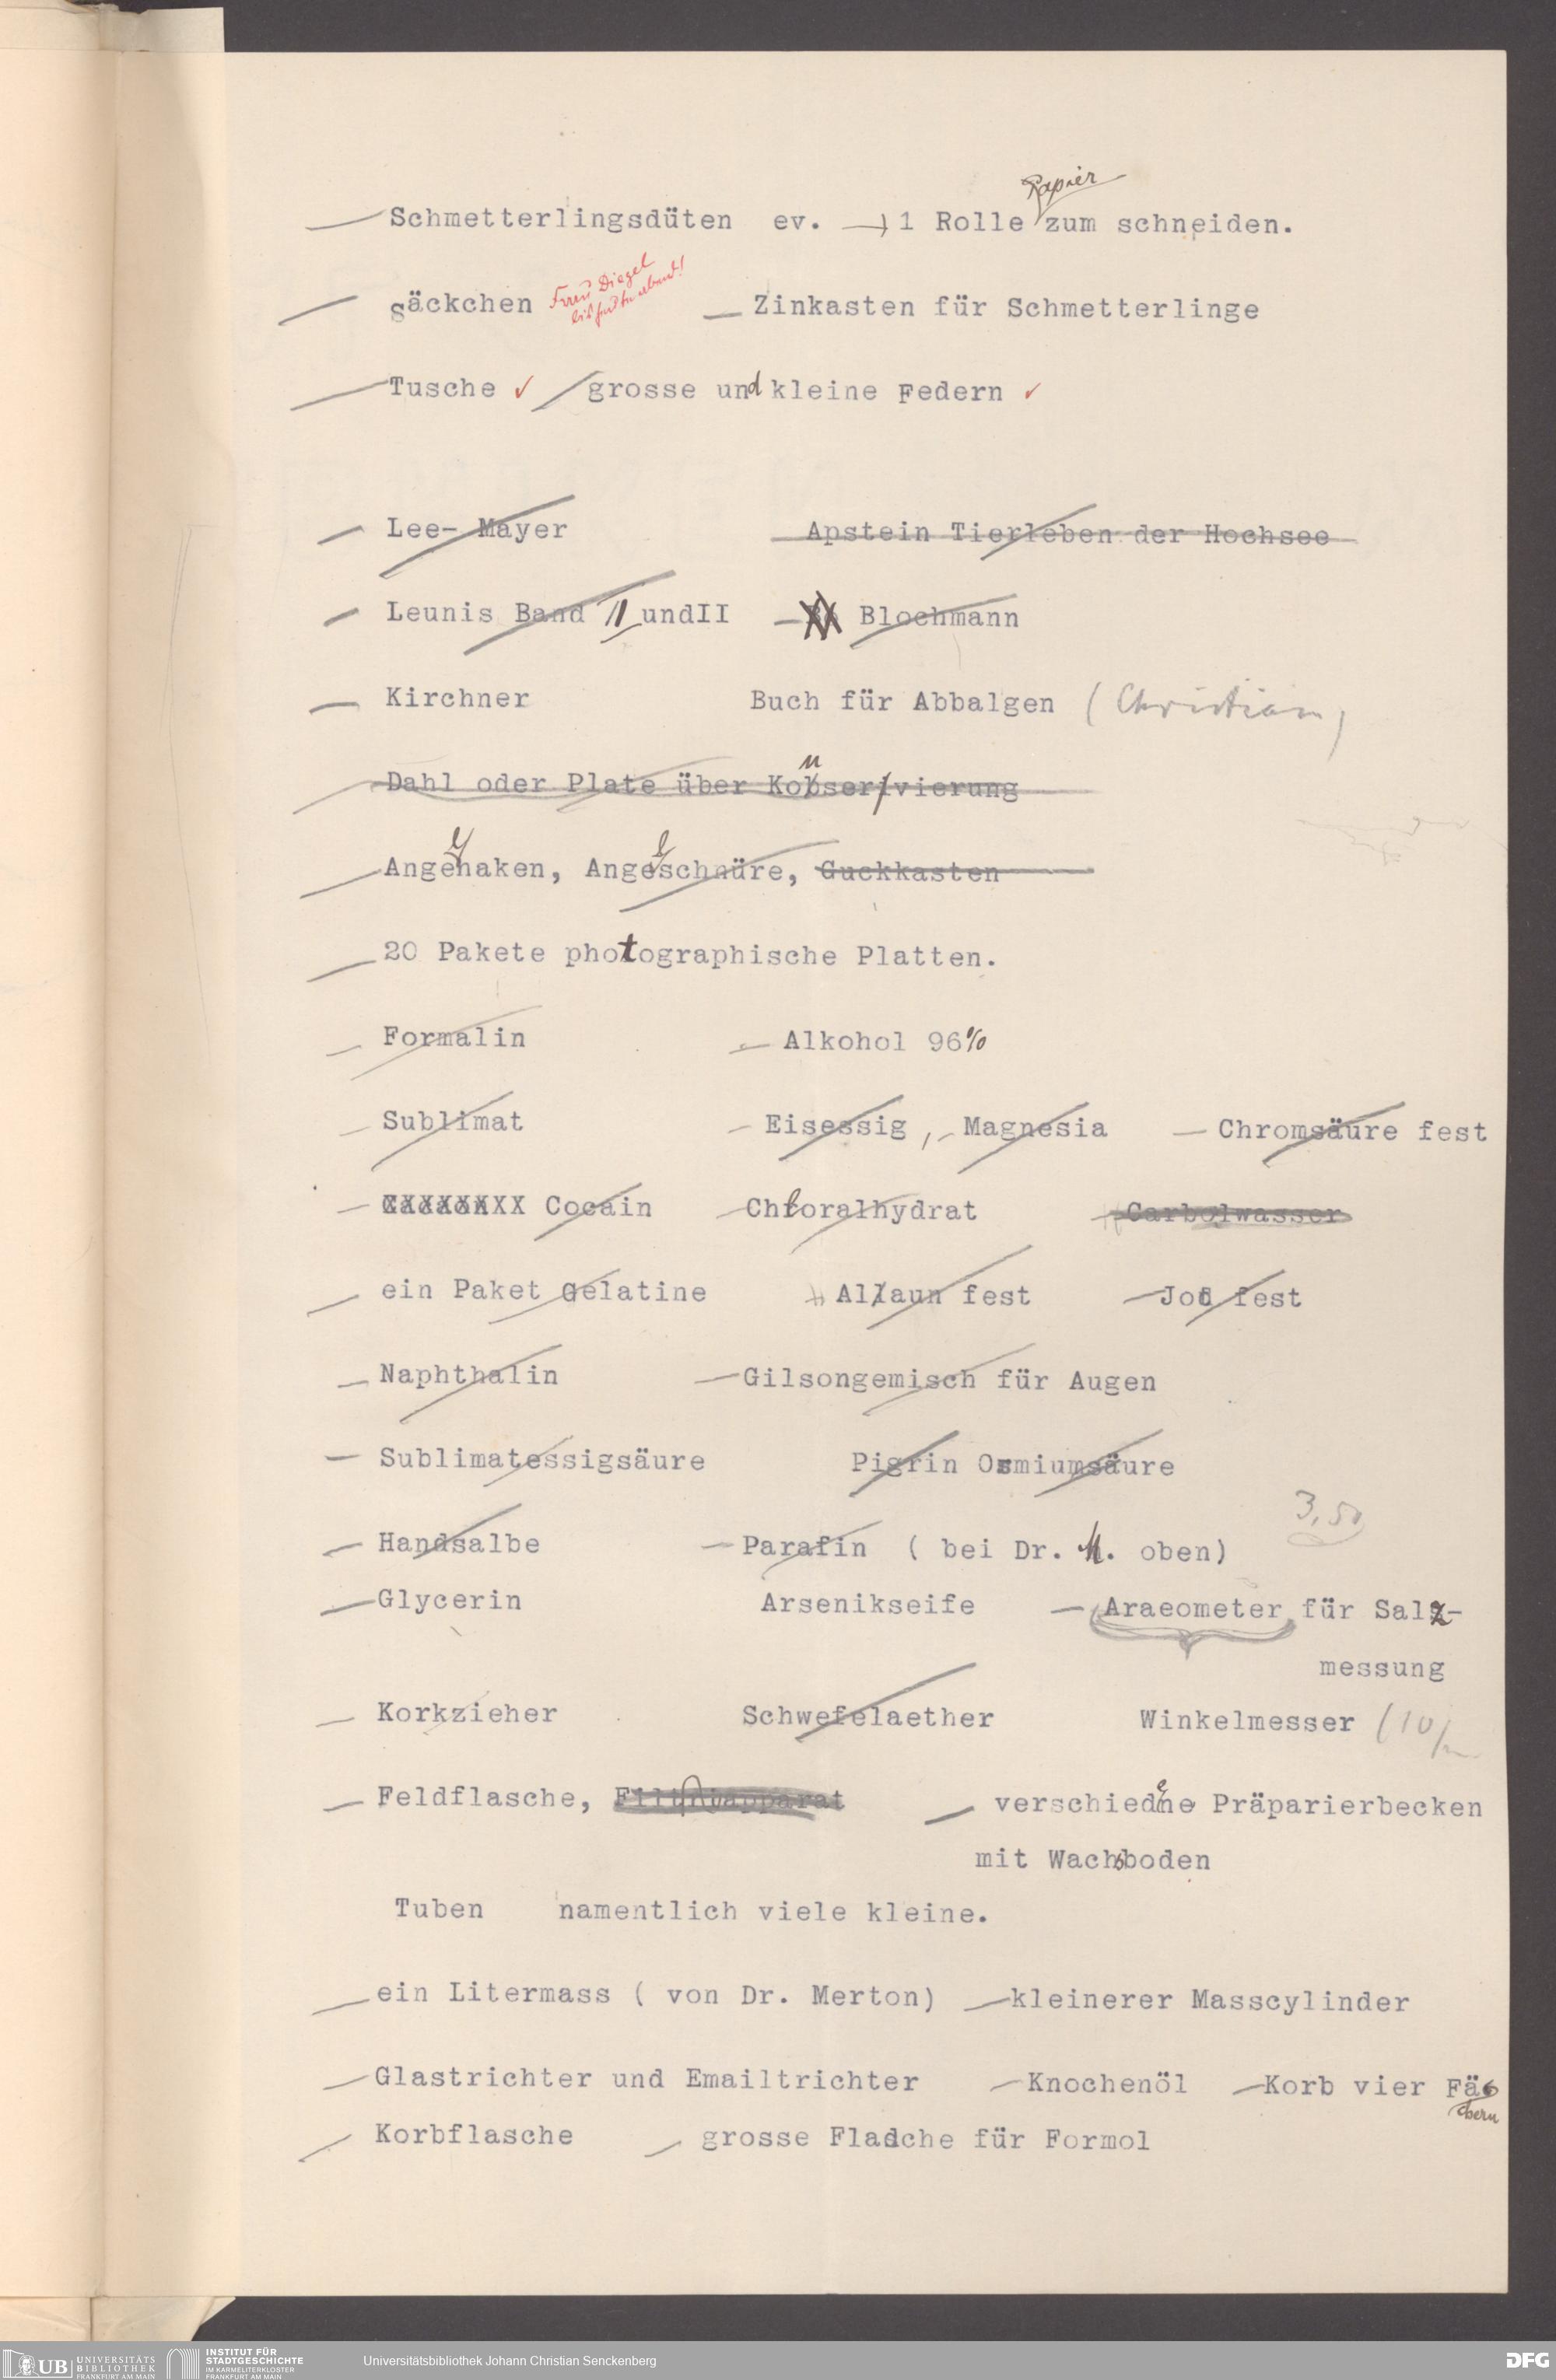 Papier
Schmetterlingsdüten ev. 1 Rolle zum schneiden.
Säckchen Frau Diegel Zinkasten für Schmetterlinge
Tusche ✓ grosse und kleine Federn ✓
Lee- Mayer Apstein Tierleben der Hochsee
Leunis Band II undII Blochmann
Kirchner Buch für Abbalgen (Christian)
Dahl oder Plate über Konservierung
Angelhaken, Angelschnüre, Guckkasten
20 Pakete photographische Platten.
Formalin Alkohol 96%
Sublimat Eisessig, Magnesia Chromsäure fest
Cocain Chloralhydrat Carbolwasser
ein Paket Gelatine Alaun fest Jod fest
Naphthalin Gilsongemisch für Augen
Sublimatessigsäure Pigrin Osmiumsäure
3,50
Handsalbe Parafin ( bei Dr. M. oben)
Glycerin Arsenikseife Araeometer für Salz-
messung
Korkzieher Schwefelaether Winkelmesser (10/
Feldflasche, verschiedene Präparierbecken
mit Wachsboden
Tuben namentlich viele kleine.
ein Litermass ( von Dr. Merton) kleinerer Masscylinder
Glastrichter und Emailtrichter Knochenöl Korb vier Fä
chern
Korbflasche grosse Flasche für Formol
UB UNIVERSITÄTS
BIBLIOTHEK
FRANKFURT AM MAIN
INSTITUT FÜR
STADTGESCHICHTE
IM KARMELITERKLOSTER
FRANKFURT AM MAIN
Universitätsbibliothek Johann Christian Senckenberg
DFG